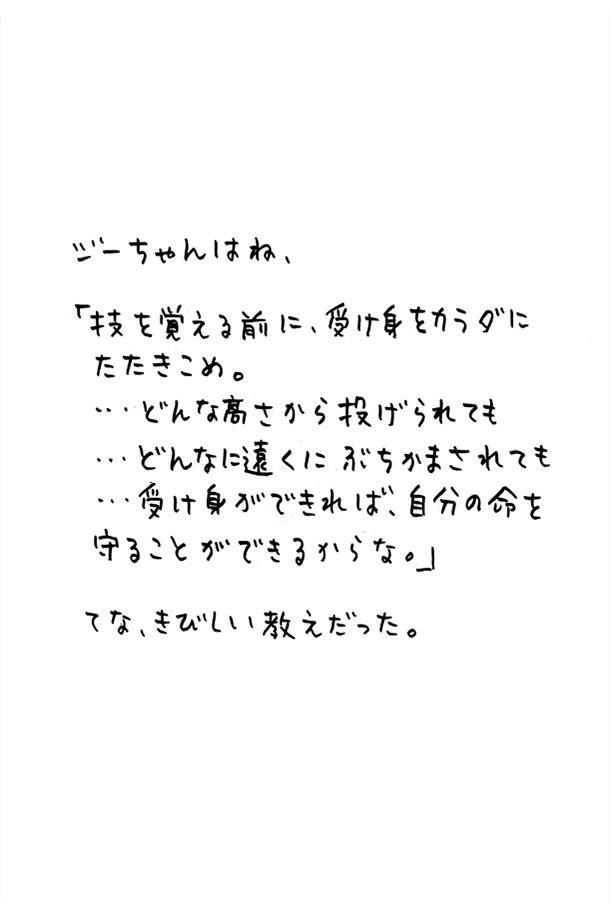 ジーちゃんはね、
「技を覚える前に、受け身をカラダに
たたきこめ。
…どんな高さから投げられても
…どんなに遠くにぶちかまされても
…受け身ができれば、自分の命を
守ることができるからな。」
てな、きびしい教えだった。